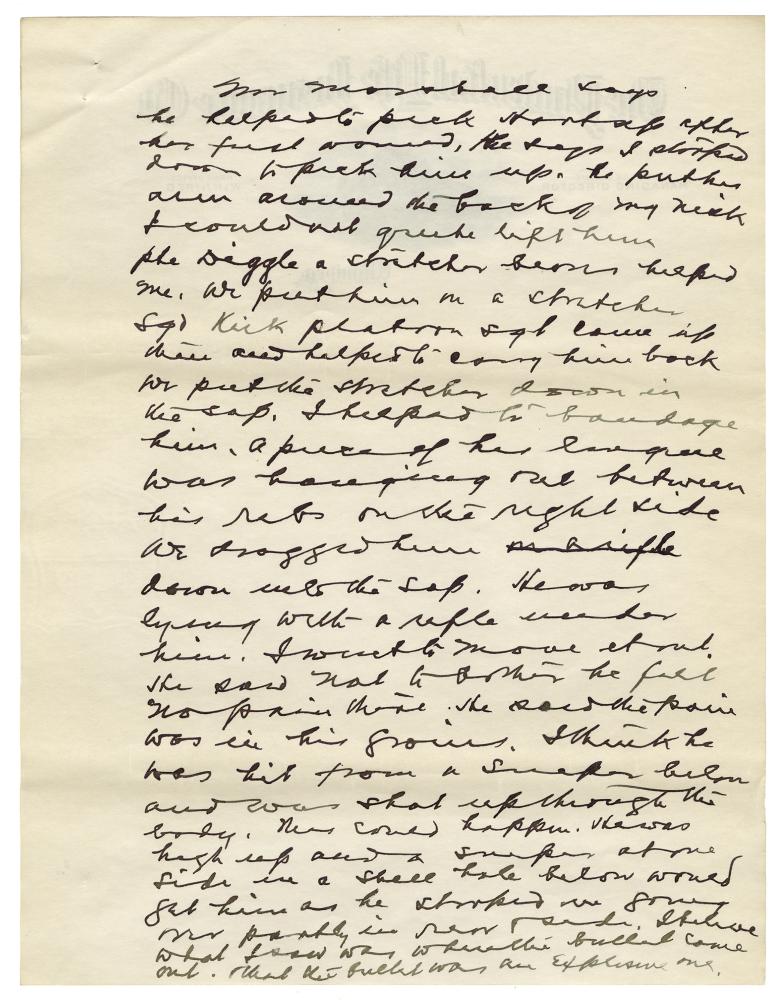 Mr Marshall says
he helped to pick Hart up after
her first wound, He says I stooped
down to pick him up. he put his
arm around the back of my neck
I could not quite lift him
pte Diggle a stretcher bearer helped
me. We put him on a stretcher
Sgt Kirk platoon sgt came up
then and helped to carry him back
We put the stretcher down in
the sap. I helped to bandage
him. A piece of his
was hanging out between
his ribs on the right side
We dragged him on a rifle
down into the sap. He was
lying with a rifle under
him. I went to move it out.
He said not to bother he felt
no pain there. He said the pain
was in his groins. I think he
was hit from a sniper below
and was shot up through the
body. This could happen. He was
high up and a sniper at one
side in a shell hole below would
get him as he stooped in going
over partly in rear & side. I believe
what I saw was where the bullet came
out. & that the bullet was an explosive one.